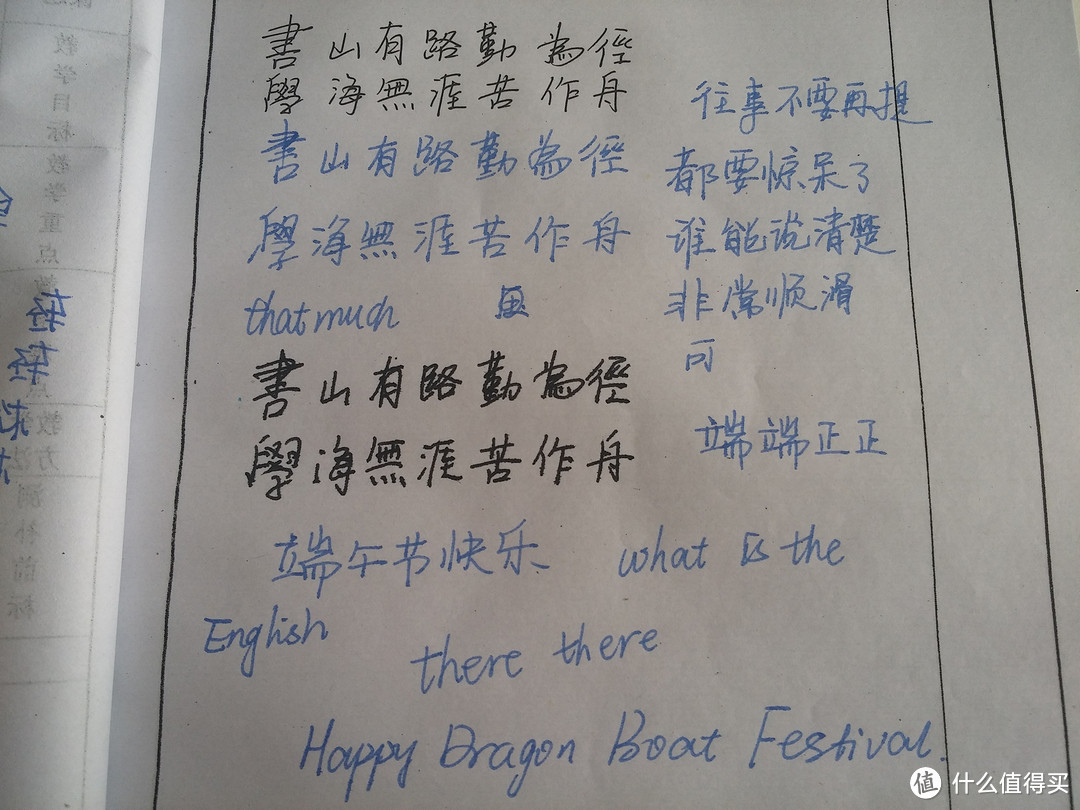 書山有路勤為徑
學海無涯苦作舟
書山有路勤為徑
學海無涯苦作舟
that much
書山有路勤為徑
學海無涯苦作舟
往事不要再提
都要惊呆了
谁能说清楚
非常顺滑
可
端端正正
端午节快乐 what is the
English
there there
Happy Dragon Boat Festival.
轻轻
教学目标
教学重点
教学方法
值 什么值得买